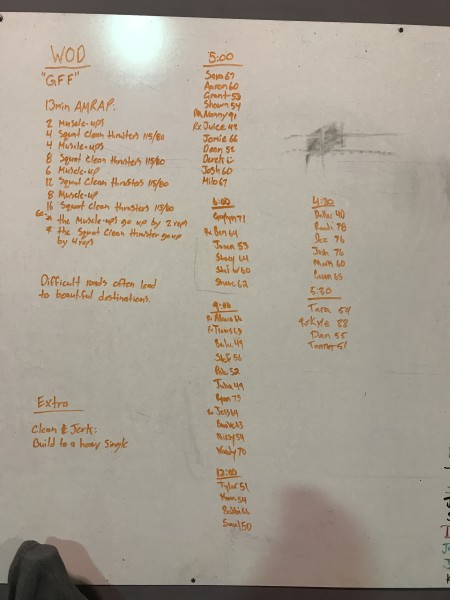 WOD
"GFF"
13min AMRAP:
2 Muscle-ups
4 Squat Clean thrusters 115/80
4 Muscle-ups
8 Squat Clean thrusters 115/80
6 Muscle-up
12 Squat Clean thrusters 115/80
8 Muscle-up
16 Squat Clean thrusters 115/80
* the Muscle-ups go up by 2 reps
* the Squat Clean thruster go up
by 4 reps
Difficult roads often lead
to beautiful destinations.
Extra
Clean & Jerk:
Build to a heavy single
5:00
Sara 67
Aaron 60
Grant 53
Shawn 54
Manny 91
Rx Juice 42
Jamie 66
Dean 52
Derek
Josh 60
Milo 67
6:00
71
Rx Ben 64
Jason 53
Stacy 64
60
62
9:00
Rx
Rx Travis
49
56
52
Julia 49
Ryan 73
Rx Jess 64
Missy 54
Woody 70
12:00
Tyler 51
54
Saul 50
4:30
Dallas 40
78
76
Josh 76
Mark 60
65
5:30
Tara 54
Rx Kyle 88
Dan 55
Tanner 51